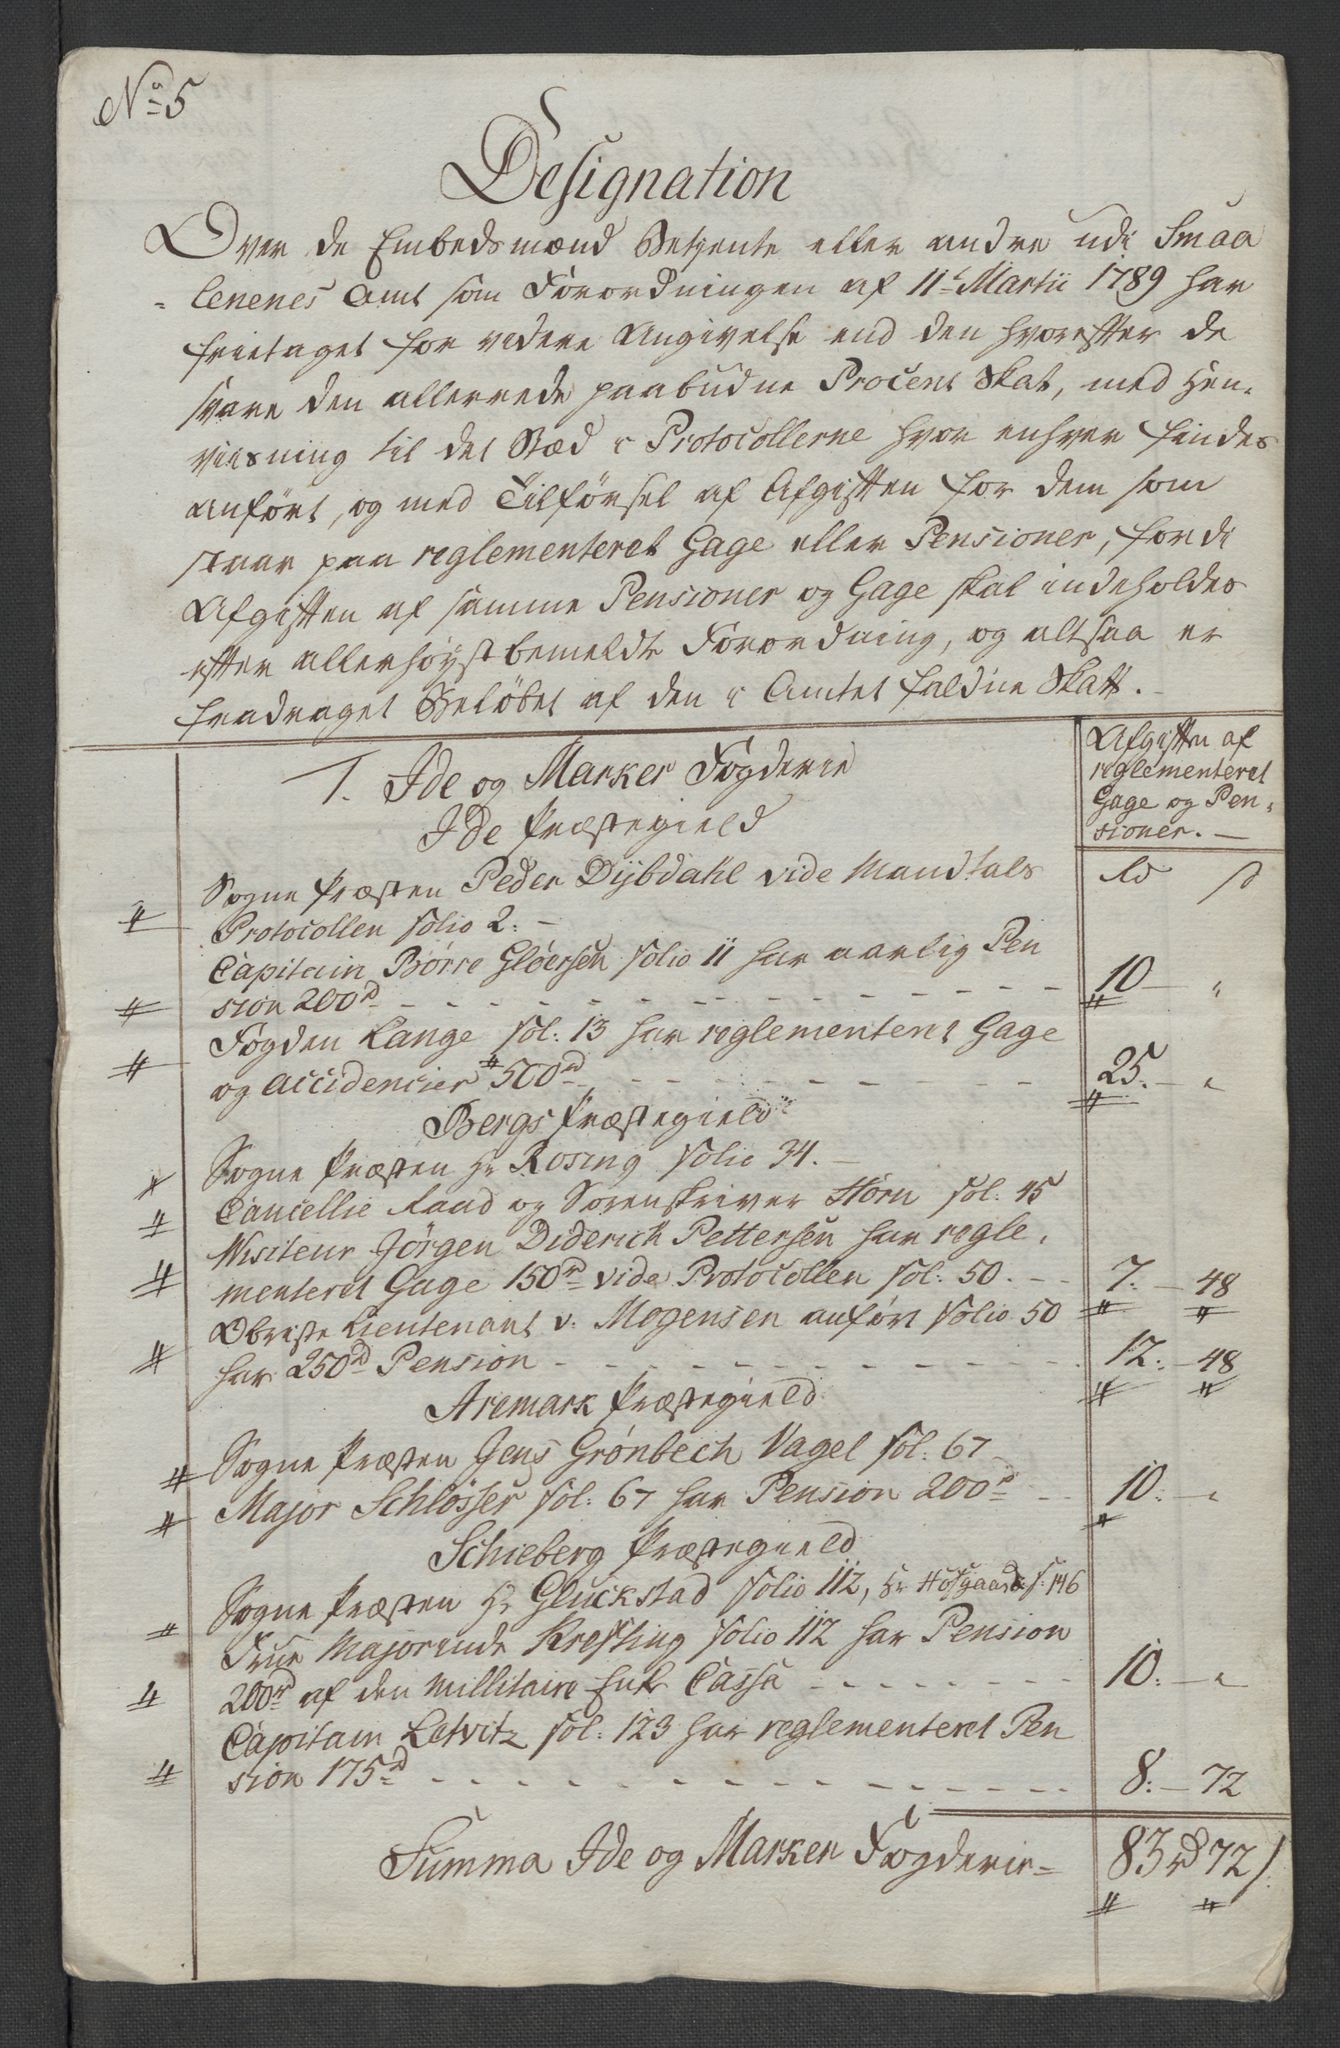 No 5
Designation
Over de Embedsmænd Betiente eller andre udi Smaa
lenenes Amt som Forordningen af 11t Martii 1789 har
frietaget for videre Angivelse end den hvorefter de
svare den allerrede paabudne Procent Skat, med Hen-
viisning til det Stæd i Protocollerne hvor enhver findes
anført, og med Tilførsel af Afgiften for dem som
staar paa reglementeret Gage eller Pensioner, fordi
Afgiften af samme Pensioner og Gage skal indeholdes
efter allerhøystbemeldte Forordning, og altsaa er
fradraget Beløbet af den i Amtet faldne Skatt.
Afgiften af
reglementeret
Gage og Pen-
sioner.
1. Ide og Marker Fogderie
Ide Præstegield
Rd s
Sogne Præsten Peder Dijbdahl vide Mandtals
Protocollen folio 2.
Capitain Børre Gløersen folio 11 har aarlig Pen
sion 200rd 10 "
Fogden Lange fol: 13 har reglementeret Gage
og Accidencier 500rd 25. "
Bergs Præstegield
Sogne Præsten Hr Rosing folio 34.
Cancellie Raad og Sorenskriver Horn fol: 45
Visiteur Jørgen Diderich Pettersen har regle-
menteret Gage 150rd vide Protocollen fol: 50. 7. 48
Obriste Lieutenant v. Mogensen anført folio 50
har 250rd Pension 12. 48
Aremark Præstegield
Sogne Præsten Jens Grønbech Vagel fol: 67
Major Schløsser fol: 67 har Pension 200rd 10. "
Schieberg Præstegield
Sogne Præsten Hr Gluckstad folio 112, Hr Hofgaard f: 146
Frue Majorinde Krefting folio 112 har Pension
200rd af den Millitaire Enke Cassa 10. "
Capitain Letvitz fol: 123 har reglementeret Pen
sion 175rd 8. 72
Summa Ide og Marker Fogderie 83rd 72s